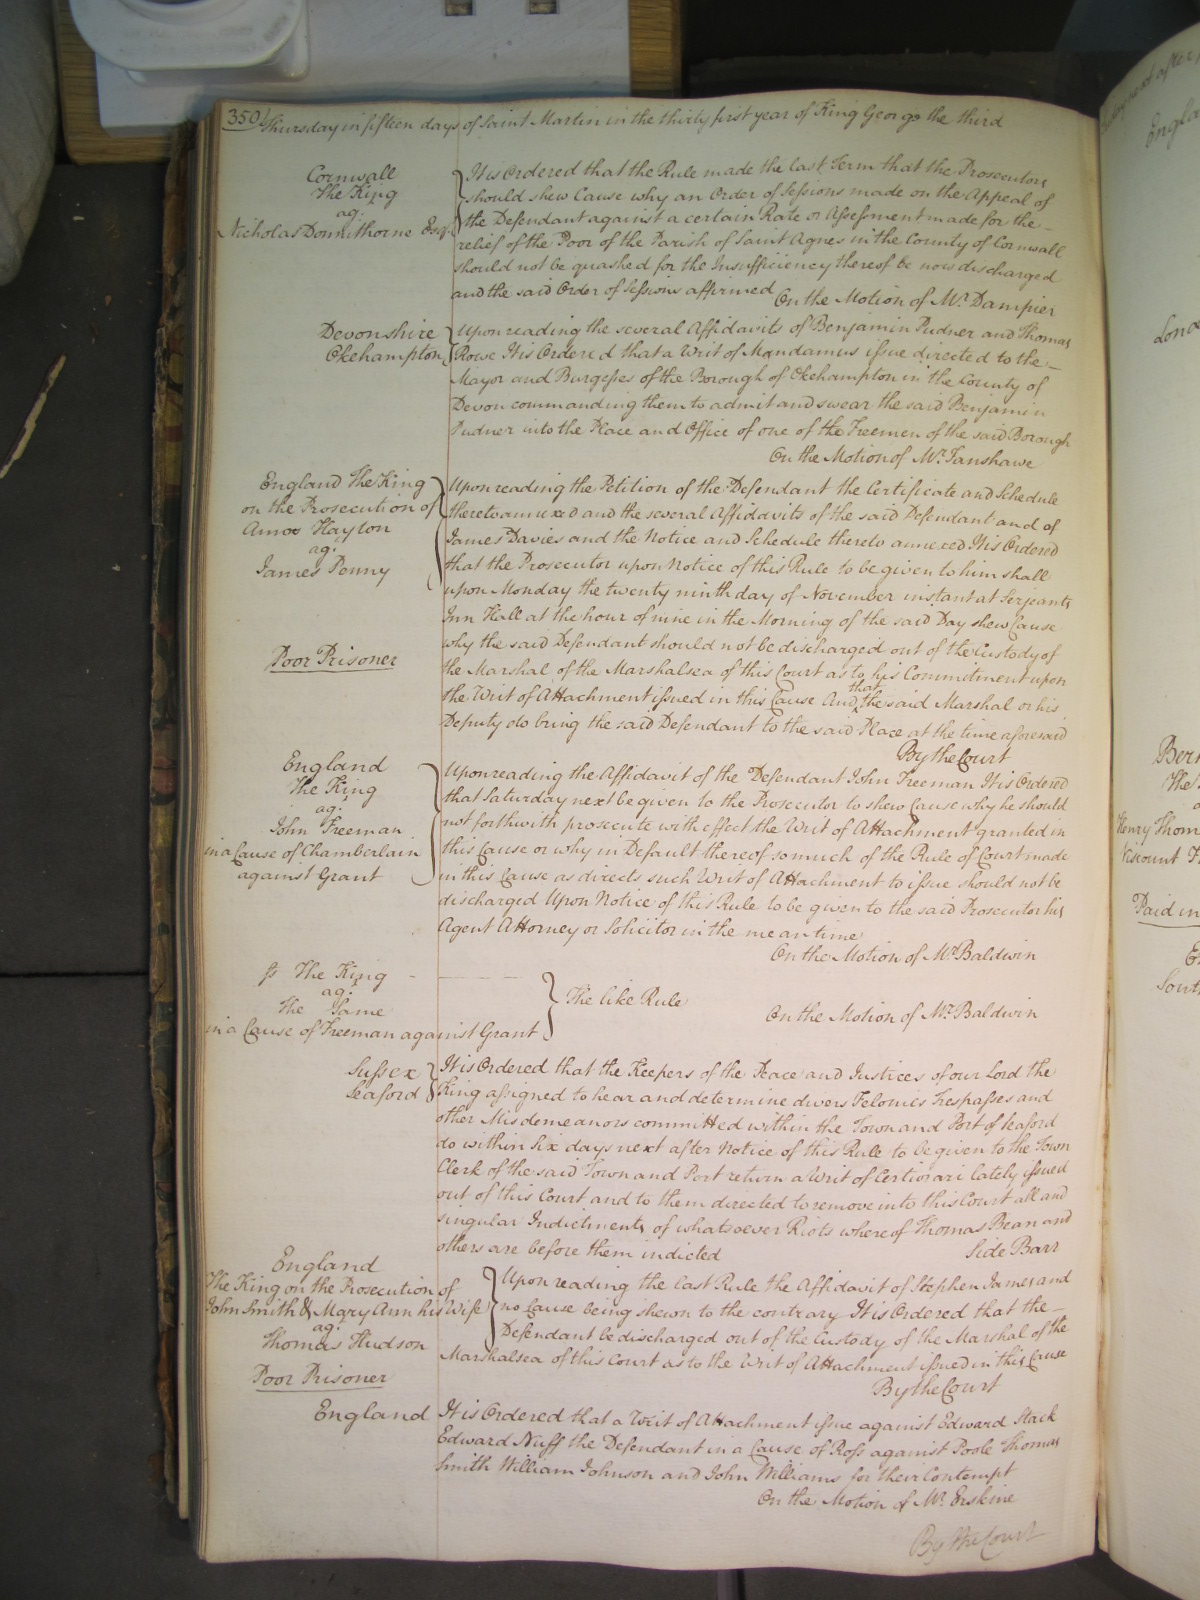 350
Thursday in fifteen days of Saint Martin in the thirty first year of King George the third
Cornwall
The King
ag.t
Nicholas Donnithorne Esq.r
It is Ordered that the Rule made the last Term that the Prosecutors
should shew Cause why an Order of Sessions made on the Appeal of
the Defendant against a certain Rate or Assessment made for the
relief of the Poor of the Parish of Saint Agnes in the County of Cornwall
should not be quashed for the Insufficiency thereof be now discharged
and the said Order of Sessions affirmed On the Motion of Mr. Dampier
Devonshire
Okehampton
Upon reading the several Affidavits of Benjamin Pudner and Thomas
Rowe It is Ordered that a Writ of Mandamus issue directed to the
Mayor and Burgesses of the Borough of Okehampton in the County of
Devon commanding them to admit and swear the said Benjamin
Pudner into the Place and Office of one of the Freemen of the said Borough
On the Motion of Mr. Fanshawe
England The King
on the Prosecution of
Amos Hayton
ag.t
James Penny
Poor Prisoner
Upon reading the Petition of the Defendant the Certificate and Schedule
thereto annexed and the several Affidavits of the said Defendant and of
James Davies and the Notice and Schedule thereto annexed It is Ordered
that the Prosecutor upon Notice of this Rule to be given to him shall
upon Monday the twenty ninth day of November instant at Serjeants
Inn Hall at the hour of nine in the Morning of the said Day shew Cause
why the said Defendant should not be discharged out of the Custody of
the Marshal of the Marshalsea of this Court as to his Commitment upon
the Writ of Attachment issued in this Cause And that the said Marshal or his
Deputy do bring the said Defendant to the said Place at the time aforesaid
By the Court
England
The King
ag.t
John Freeman
in a Cause of Chamberlain
against Grant
Upon reading the Affidavit of the Defendant John Freeman It is Ordered
that Saturday next be given to the Prosecutor to shew Cause why he should
not forthwith prosecute with effect the Writ of Attachment granted in
this Cause or why in Default thereof so much of the Rule of Court made
in this Cause as directs such Writ of Attachment to issue should not be
discharged Upon Notice of this Rule to be given to the said Prosecutor his
Agent Attorney or Solicitor in the mean time
On the Motion of Mr. Baldwin
ss The King
ag.t
The Same
in a Cause of Freeman against Grant
The like Rule
On the Motion of Mr. Baldwin
Sussex
Seaford
It is Ordered that the Keepers of the Peace and Justices of our Lord the
King assigned to hear and determine divers Felonies Trespasses and
other Misdemeanors committed within the Town and Port of Seaford
do within Six days next after Notice of this Rule to be given to the Town
Clerk of the said Town and Port return a Writ of Certiorari lately issued
out of this Court and to them directed to remove into this Court all and
singular Indictments of whatsoever Riots whereof Thomas Bean and
others are before them indicted
Side Barr
England
The King on the Prosecution of
John Smith & Mary Ann his Wife
ag.t
Thomas Hudson
Poor Prisoner
Upon reading the last Rule the Affidavit of Stephen James and
no Cause being shewn to the contrary It is Ordered that the
Defendant be discharged out of the Custody of the Marshal of the
Marshalsea of this Court as to the Writ of Attachment issued in this Cause
By the Court
England
It is Ordered that a Writ of Attachment issue against Edward Stack
Edward Nuff the Defendant in a Cause of Ross against Poole Thomas
Smith William Johnson and John Williams for their Contempt
On the Motion of Mr. Erskine
By the Court